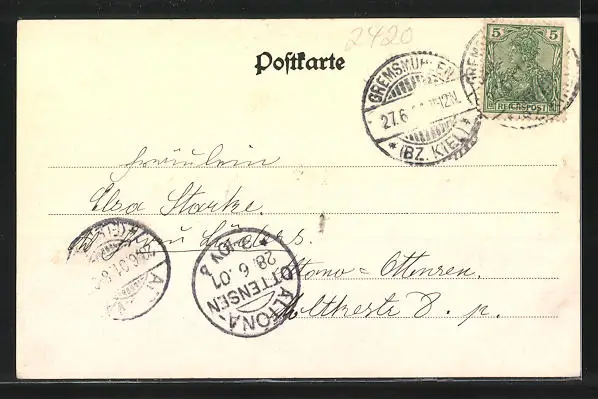 2420
Postkarte
5 5
REICHSPOST
GREMSMÜHLEN
27.6. 11-12N.
* (BZ. KIEL) *
Fräulein
Elsa Starke.
Frau Lüders.
Altona = Ottensen.
Moltkestr 8. p.
ALTONA-
OTTENSEN
28.6.01